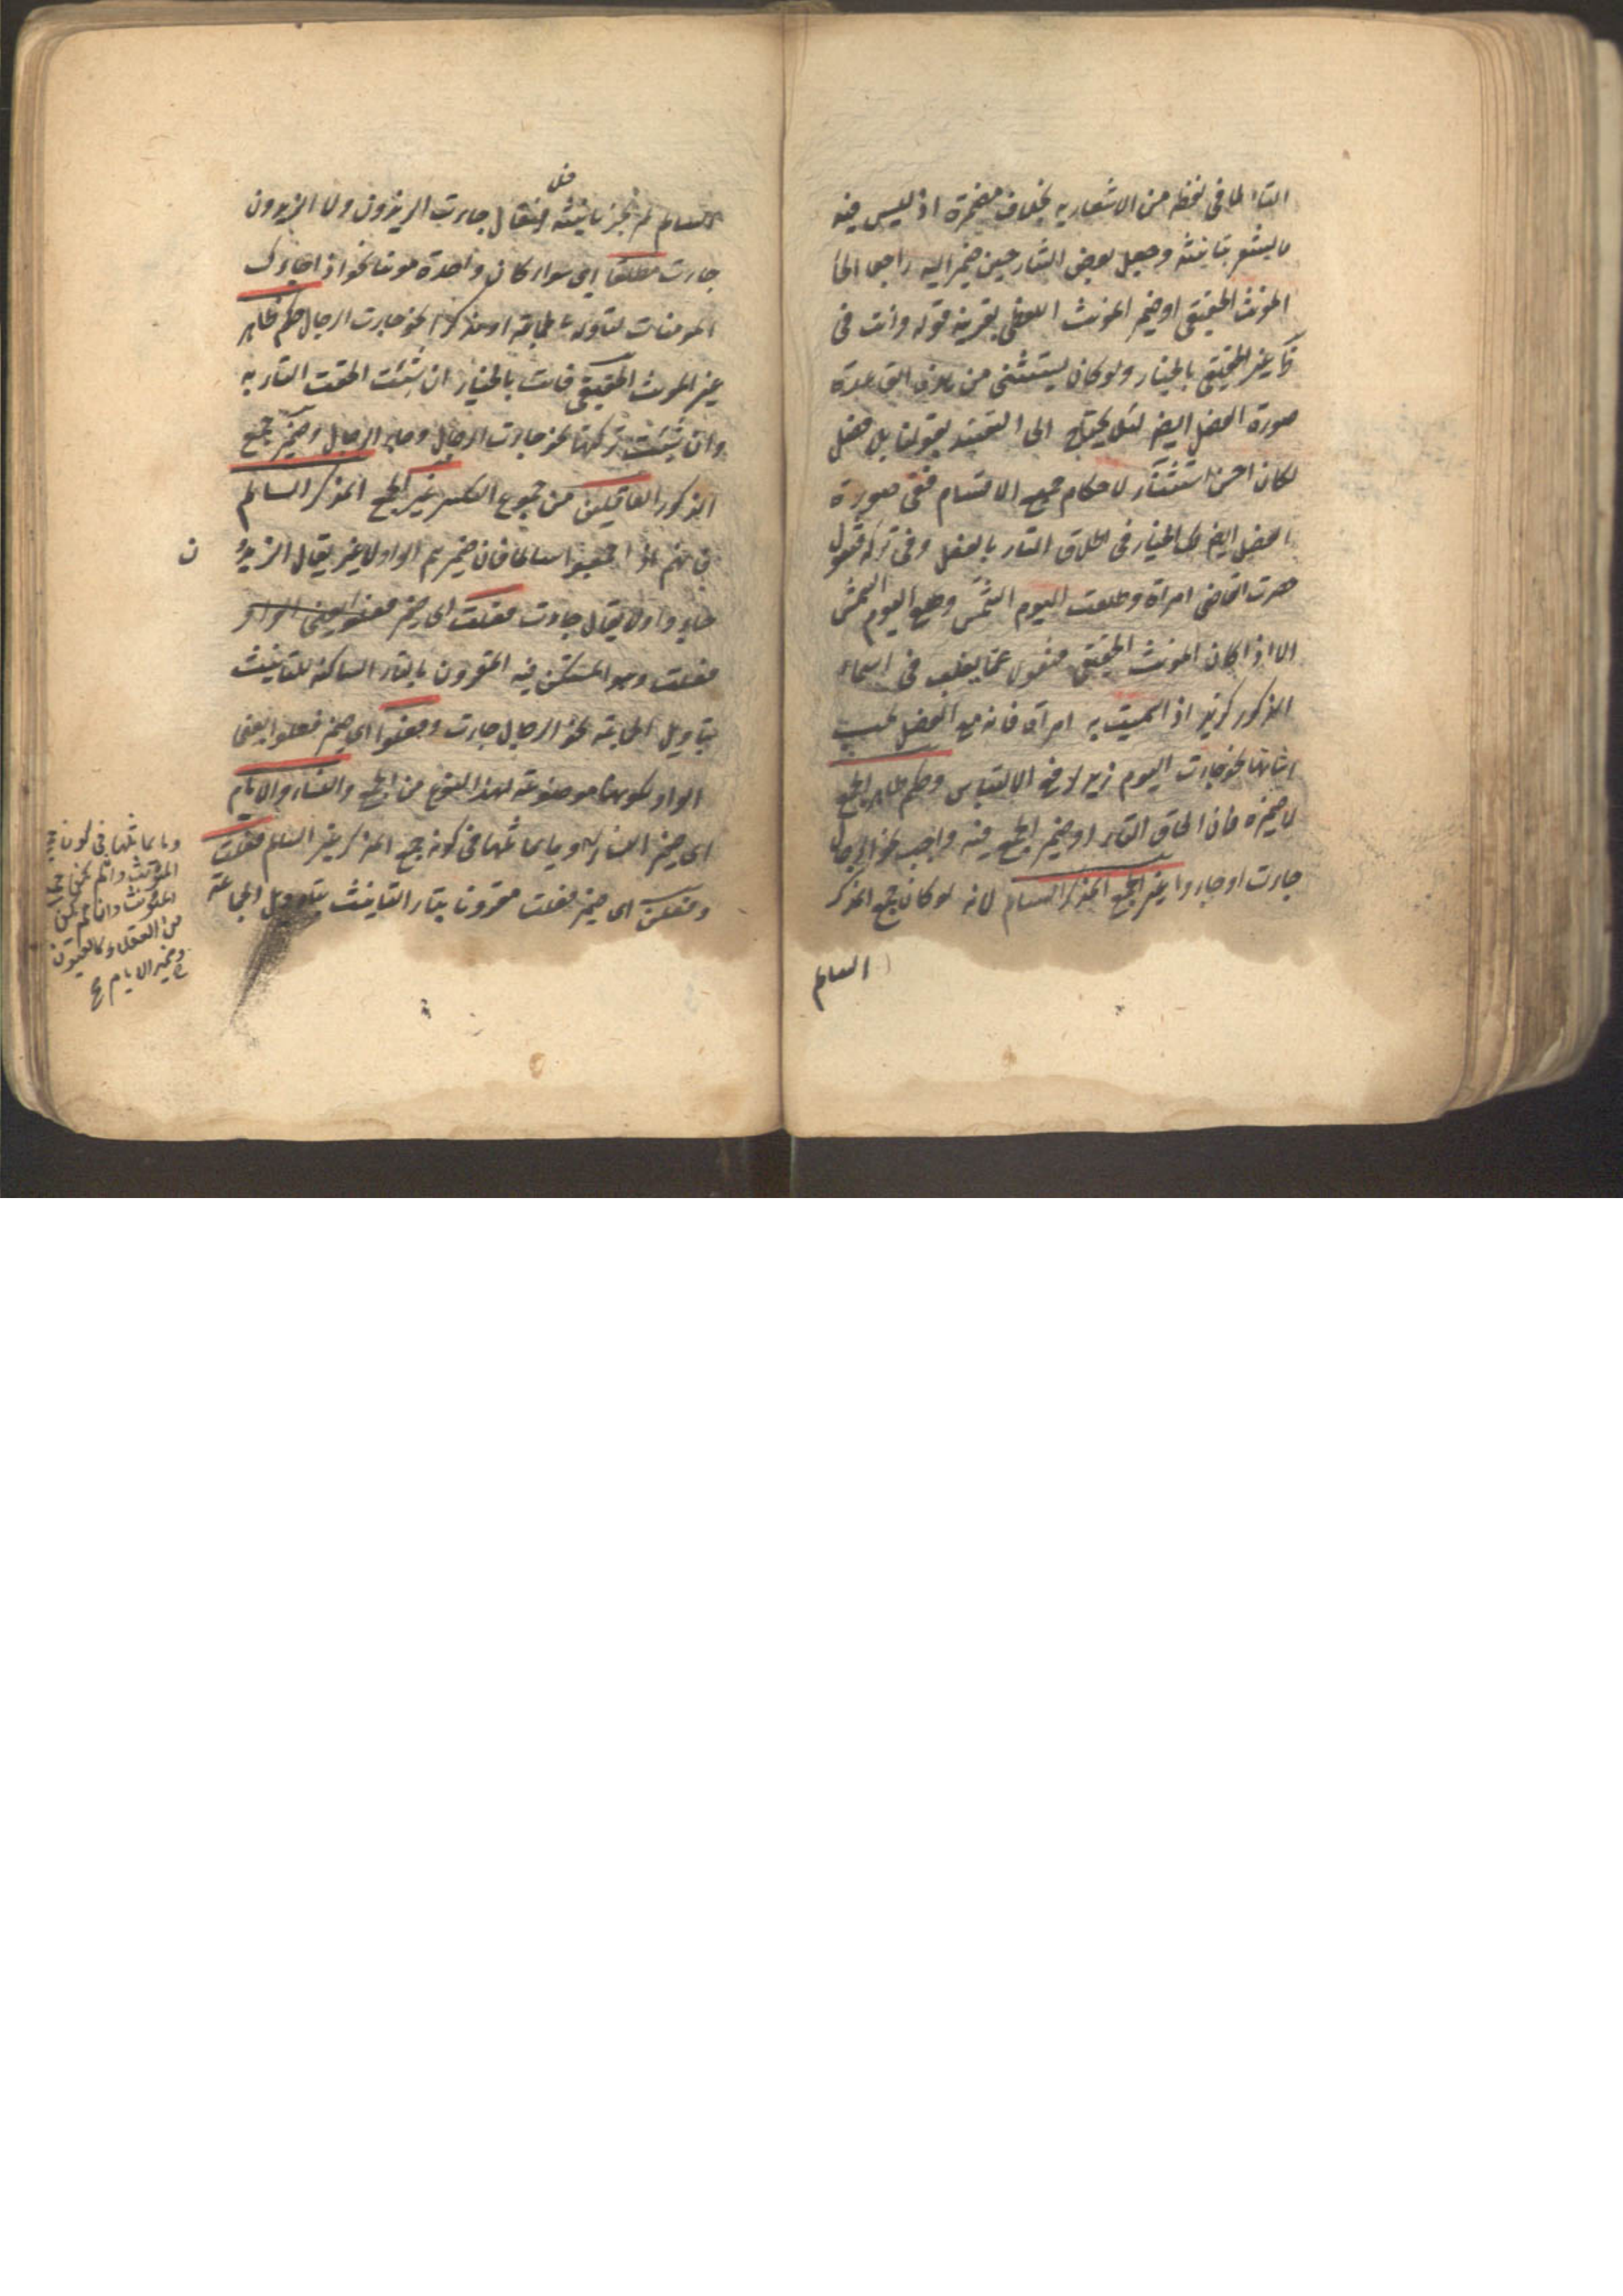 التاء لما في لفظه من الاشعار به بخلاف مضمره اذ ليس فيه
ما يشعر بتانيثه وجعل بعض الشارحين ضمير اليه راجعا الى
المونث الحقيقي او ضمير المونث اللفظي بقرينة قوله وانت في
ظاهر غير الحقيقي بالخيار ولو كان يستثنى من هذه القاعدة
صورة الفصل ايضا لئلا يحتاج الى التقييد بقولنا بلا فصل
لكان احسن استثناء لاحكام جميع الاقسام ففي صورة
الفصل ايضا لك الخيار في الحاق التاء بالفعل وفي تركه فتقول
حضرت القاضي امراة وطلعت اليوم الشمس وطلع اليوم الشمس
الا اذا كان المونث الحقيقي منقولا عما يغلب في اسماء
الذكور كزيد اذا سميت به امراة فانه مع الفصل يجب
اثباتها نحو جاءت اليوم زيد لدفع الالتباس وحكم ظاهر الجمع
لا ضميره فان الحاق التاء او ضمير الجمع فيه واجب نحو الرجال
جاءت او جاءوا غير الجمع المذكر السالم لانه لو كان جمع المذكر
السالم
السالم لم يجز تانيثه فلا يقال جاءت الزيدون ولا الزيدون
جاءت مطلقا اي سواء كان واحده مونثا نحو اذا جاءك
المومنات لتاوله بالجماعة او مذكرا نحو جاءت الرجال حكم ظاهر
غير المونث الحقيقي فانت بالخيار ان شئت الحقت التاء به
وان شئت تركتها نحو جاءت الرجال وجاء الرجال وضمير جمع
الذكور العاقلين من جموع التكسير غير الجمع المذكر السالم
فانهم اذا جمعوا سالما فان ضميرهم الواو لا غير يقال الزيدون
جاءوا ولا يقال جاءت فعلت اي ضمير
فعلت وهو المستكن فيه المقرون بالتاء الساكنة للتانيث
بتاويل الجماعة نحو الرجال جاءت وفعلوا اي ضمير فعلوا يعني
الواو لكونها موضوعة لهذا النوع من الجمع والنساء والايام
اي ضمير النساء وما يماثلها في كونه جمع المذكر غير السالم فعلت
وفعلن اي ضمير فعلت مقرونا بتاء التانيث بتاويل الجماعة
وما يماثلها في كون جمع
المونث وان لم يكن
من العقلاء كالعيون
وضمير الايام